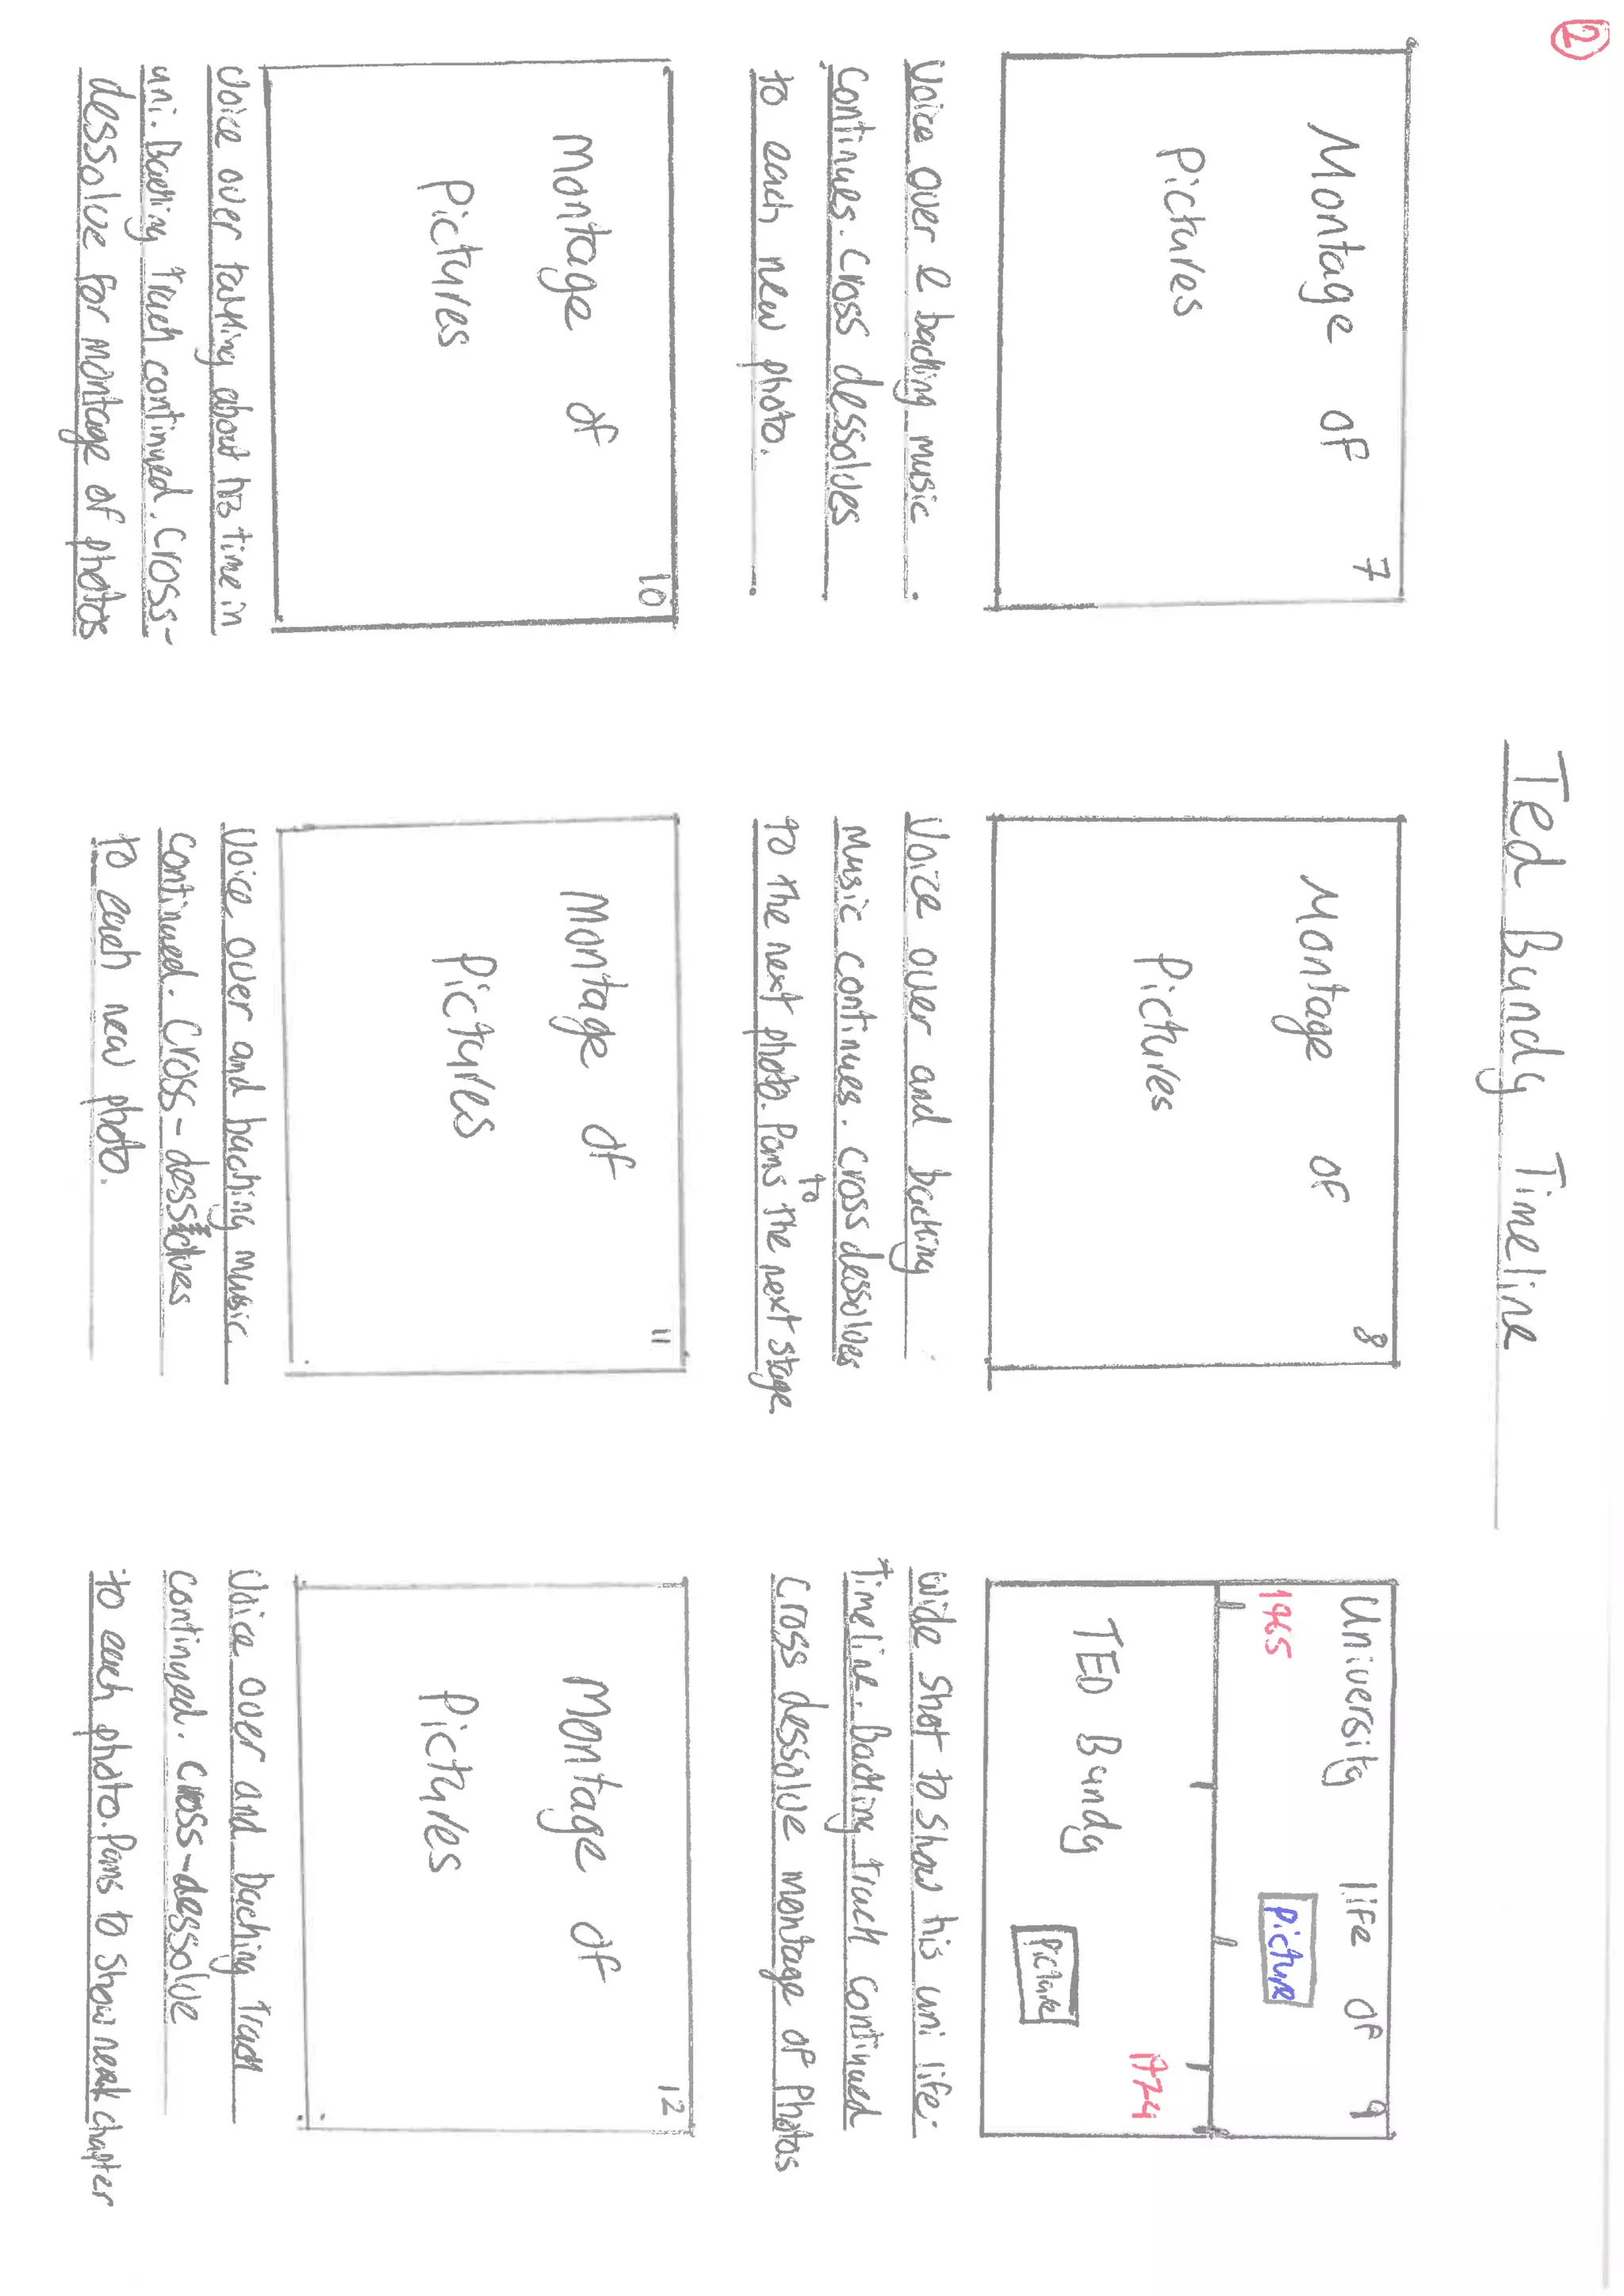 ②
Ted Bundy Timeline
7
Montage of
Pictures
Voice over & backing music
continues. Cross dessolves
to each new photo.
8
Montage of
Pictures
Voice over and backing
music continues. Cross dessolves
to the next photo. Pans to the next stage.
9
University life of
1965
Picture
TED Bundy
Picture
1974
Wide shot to show his uni life.
Timeline. Backing track continued
Cross dessolve montage of Photos
10
Montage of
Pictures
Voice over talking about his time in
uni. Backing Track continued. Cross-
dessolve for montage of photos
11
Montage of
Pictures
Voice over and backing music
continued. Cross-dessolves
to each new photo.
12
Montage of
Pictures
Voice over and backing Track
continued. Cross-dessolve
to each photo. Pans to show next chapter